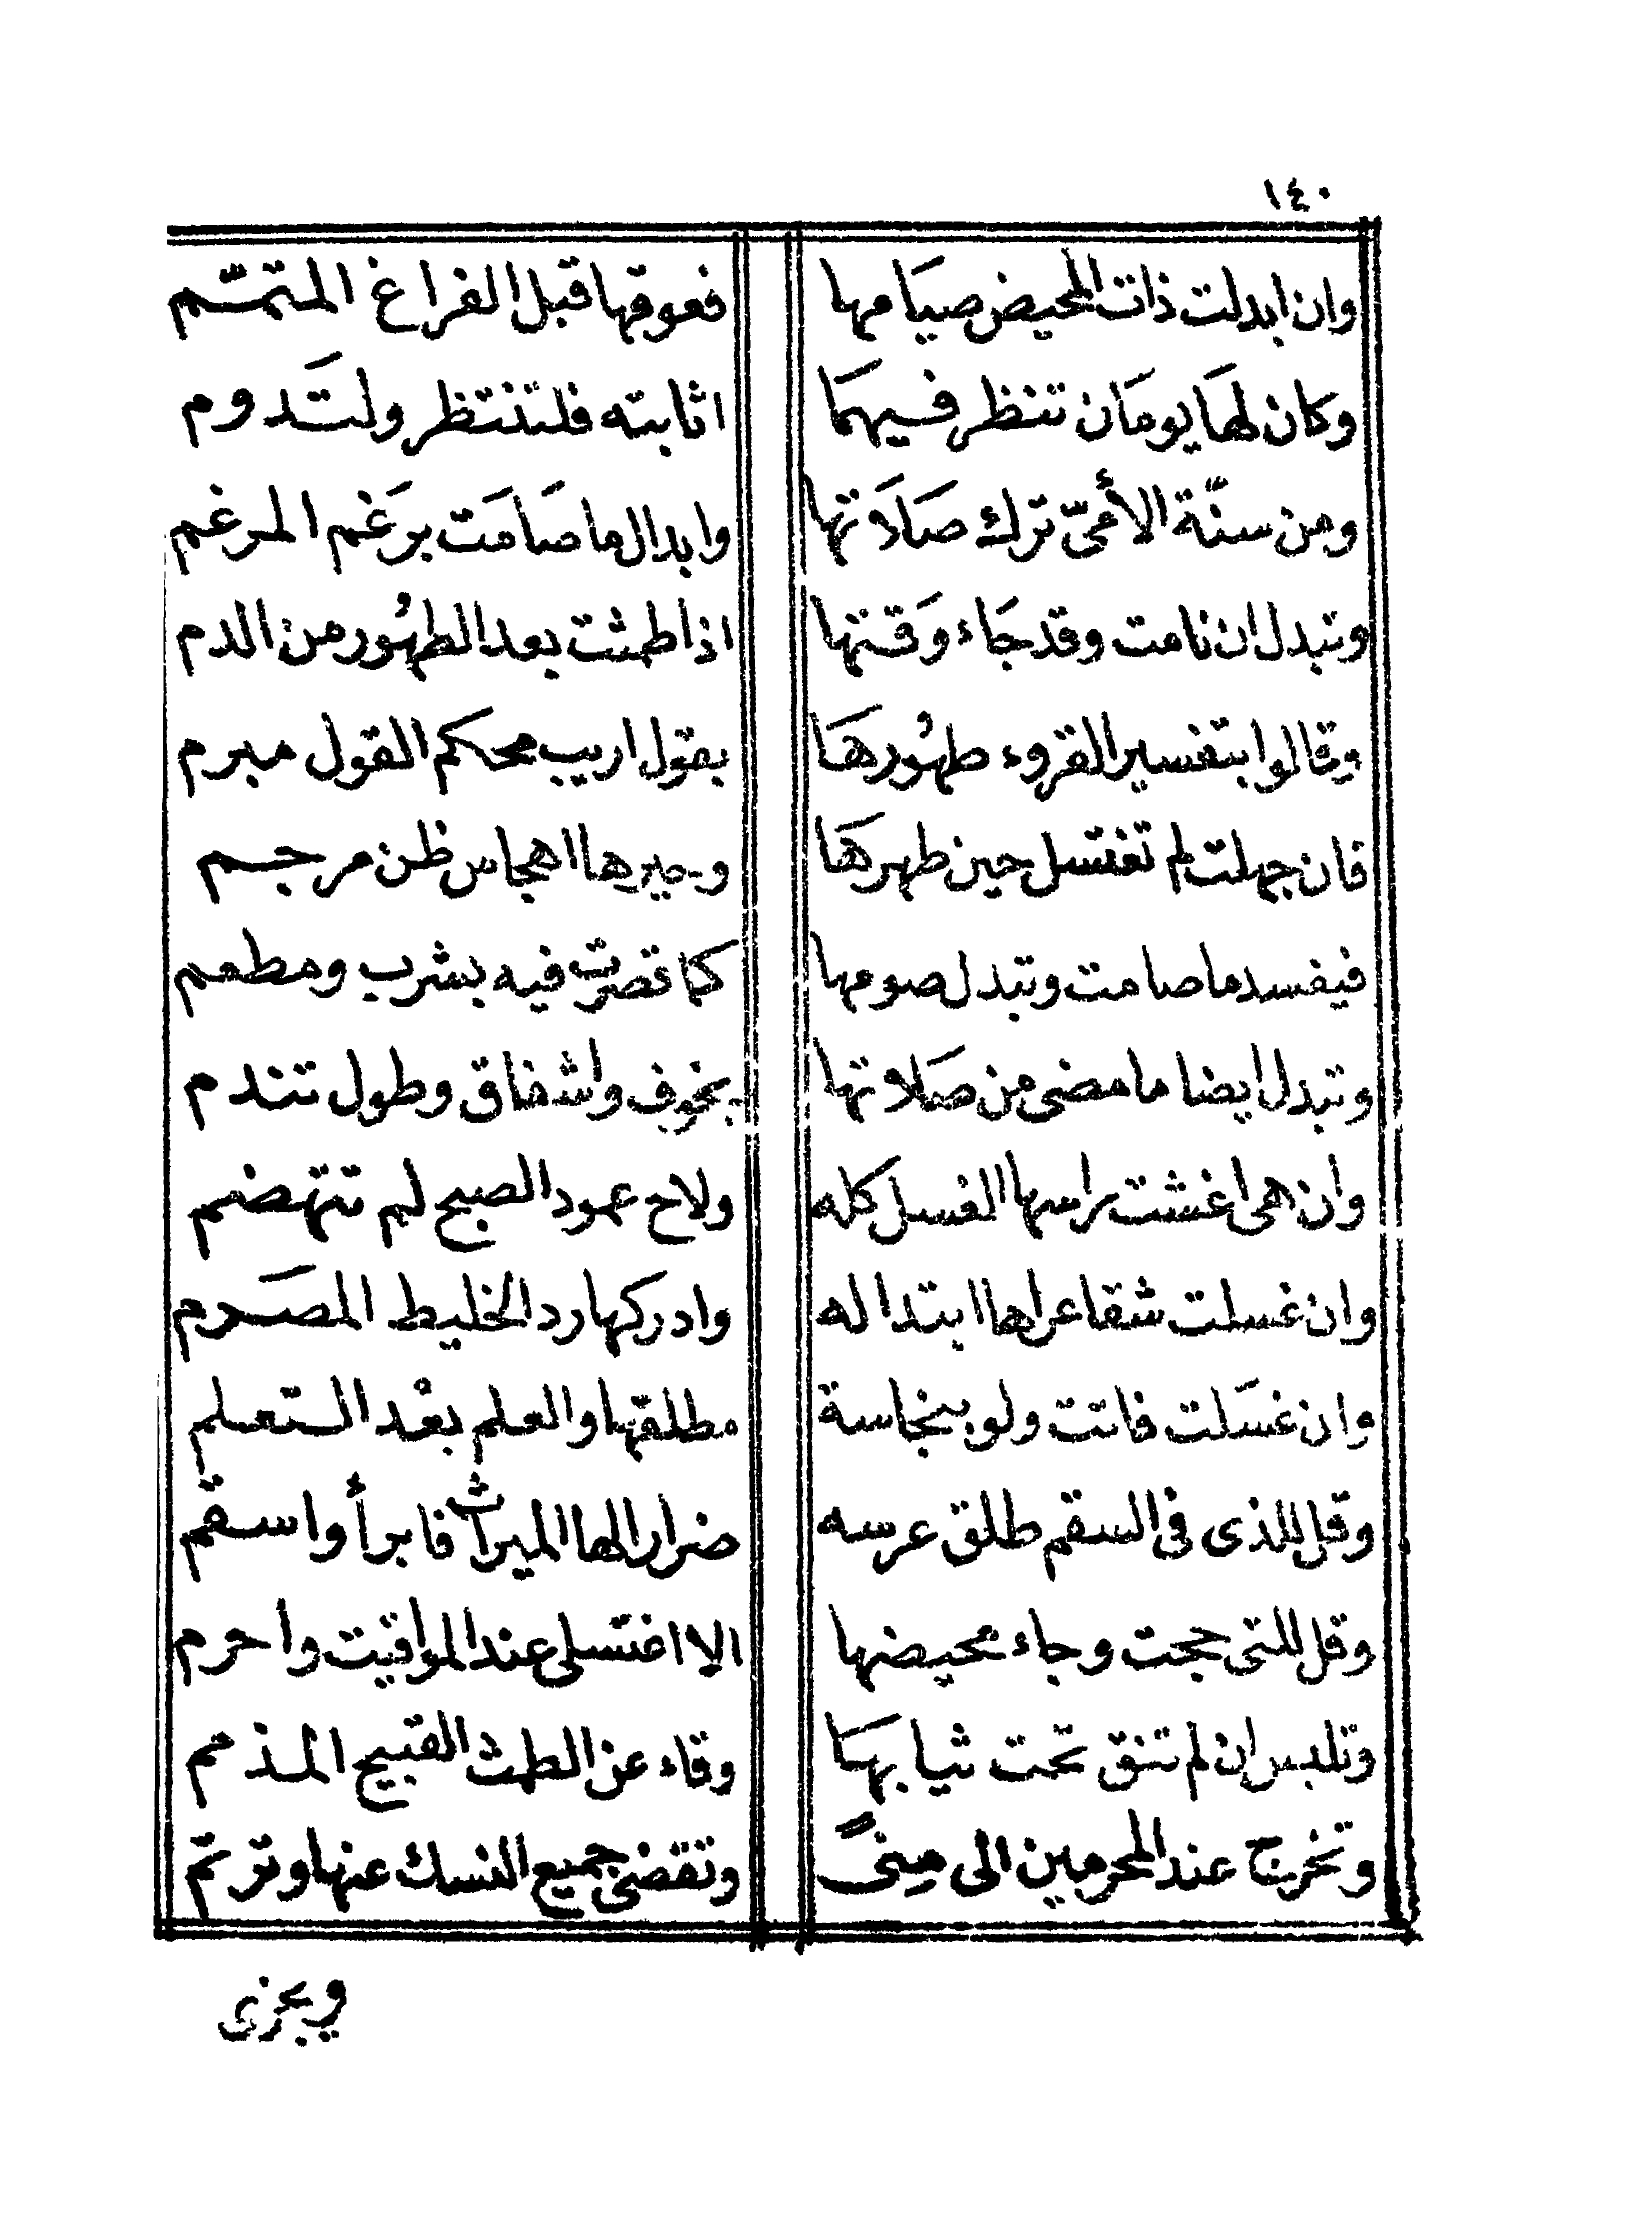 ١٤٠
وان ابدلت ذات المحيض صيامها فعوقها قبل الفراغ المتمّم
وكان لها يومان تنظر فيهما اثابته فلتنتظر ولتدوم
ومن سنّة الأمىّ ترك صلاتها وابدال ما صامت برغم المرغم
وتبدل ان نامت وقد جاء وقتها اذا طمثت بعد الطهور من الدم
وقالوا بتفسير القروء طهورها بقول اريب محكم القول مبرم
فان جهلت لم تغتسل حين طهرها وحيرها اهجاس ظن مرجم
فيفسد ما صامت وتبدل صومها كما قصرت فيه بشرب ومطعم
وتبدل ايضا ما مضى من صلاتها بخوف واشفاق وطول تندم
وان هى اغشت براسها الغسل كله ولاح عمود الصبح لم تتهضم
وان غسلت شقا عراها ابتداله وادركها رد الخليط المصرم
وان غسلت فاتت ولو بنجاسة مطلقها والعلم بعد التعلم
وقل للذى فى السقم طلق عرسه ضرارا لها الميراث فابرأ واسقم
وقل للتى حجت وجاء محيضها الا اغتسلى عند المواقيت واحرم
وتلبس ان لم تنق تحت ثيابها وقاء عن الطمث القبيح المذمم
وتخرج عند المحرمين الى مِنىً وتقضى جميع النسك عنها وترتم
ويجزى